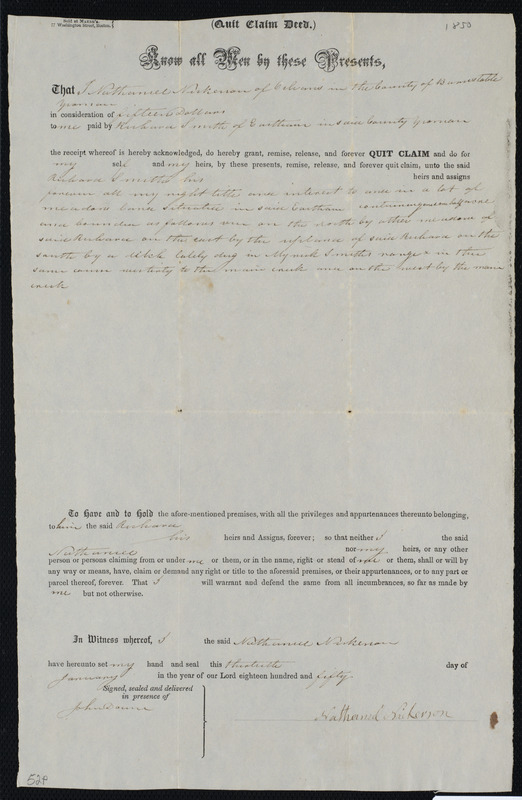 Sold at MARSH'S
77 Washington Street, Boston.
(Quit Claim Deed.)
1850
Know all Men by these Presents,
That I Nathaniel Nickerson of Orleans in the County of Barnstable
Yeoman
in consideration of fifteen Dollars
to me paid by Richard Smith of Eastham in said County Yeoman
the receipt whereof is hereby acknowledged, do hereby grant, remise, release, and forever QUIT CLAIM and do for
my self and my heirs, by these presents, remise, release, and forever quit claim, unto the said
Richard Smith his heirs and assigns
forever all my right title and interest to and in a lot of
meadow land situated in said Eastham containing one half acre
and bounded as follows viz on the north by other meadow of
said Richard on the east by the upland of said Richard on the
south by a ditch lately dug in Myrick Smith's range & in the
same course westerly to the main creek and on the west by the main
creek
To Have and to Hold the afore-mentioned premises, with all the privileges and appurtenances thereunto belonging,
to him the said Richard
his heirs and Assigns, forever; so that neither I the said
Nathaniel nor my heirs, or any other
person or persons claiming from or under me or them, or in the name, right or stead of me or them, shall or will by
any way or means, have, claim or demand any right or title to the aforesaid premises, or their appurtenances, or to any part or
parcel thereof, forever. That I will warrant and defend the same from all incumbrances, so far as made by
me but not otherwise.
In Witness whereof, I the said Nathaniel Nickerson
have hereunto set my hand and seal this thirtieth day of
January in the year of our Lord eighteen hundred and fifty
Signed, sealed and delivered
in presence of
John Doane
Nathaniel Nickerson
529